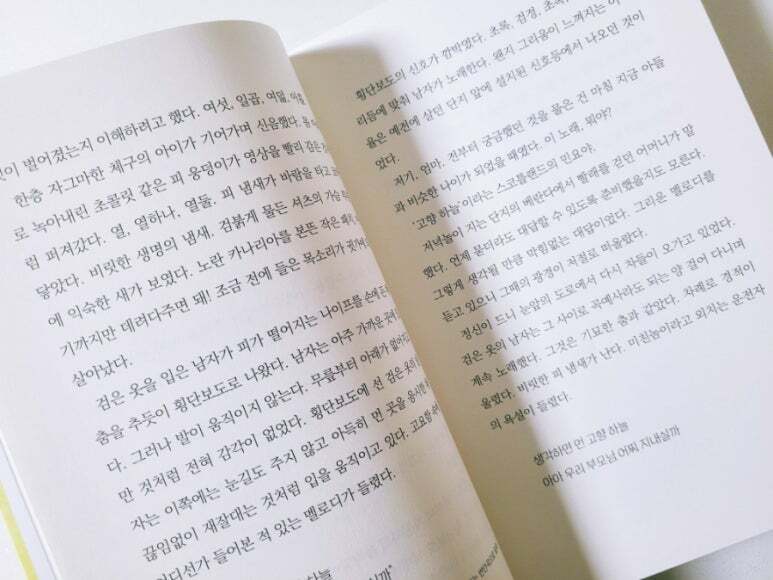 벌어졌는지 이해하려고 했다. 여섯, 일곱, 여덟,
한층 자그마한 체구의 아이가 기어가며 신음했다.
로 녹아내린 초콜릿 같은 피 웅덩이가 영상을 빨리 감은
럼 퍼져갔다. 열, 열하나, 열둘. 피 냄새가 바람을 타고
닿았다. 비릿한 생명의 냄새. 검붉게 물든 셔츠의 가슴
에 익숙한 새가 보였다. 노란 카나리아를 본뜬 작은
기까지만 데려다주면 돼! 조금 전에 들은 목소리가
살아났다.
검은 옷을 입은 남자가 피가 떨어지는 나이프를 손에
춤을 추듯이 횡단보도로 나왔다. 남자는 아주 가까운
다. 그러나 발이 움직이지 않는다. 무릎부터 아래가
만 것처럼 전혀 감각이 없었다. 횡단보도에 선 검은 옷의
자는 이쪽에는 눈길도 주지 않고 아득히 먼 곳을 응시한
끊임없이 재잘대는 것처럼 입을 움직이고 있다. 고요함
어디선가 들어본 적 있는 멜로디가 들렸다.
하늘
횡단보도의 신호가 깜박였다. 초록, 검정,
리듬에 맞춰 남자가 노래한다. 왠지 그리움이 느껴지는 이
율은 예전에 살던 단지 앞에 설치된 신호등에서 나오던 것이
었다.
저기, 엄마. 전부터 궁금했던 것을 물은 건 마침 지금 아들
과 비슷한 나이가 되었을 때였다. 이 노래, 뭐야?
'고향 하늘'이라는 스코틀랜드의 민요야.
저녁놀이 지는 단지의 베란다에서 빨래를 걷던 어머니가 말
했다. 언제 묻더라도 대답할 수 있도록 준비했을지도 모른다.
그렇게 생각될 만큼 막힘없는 대답이었다. 그리운 멜로디를
듣고 있으니 그때의 광경이 저절로 떠올랐다.
정신이 드니 눈앞의 도로에서 다시 차들이 오가고 있었다.
검은 옷의 남자는 그 사이로 곡예사라도 되는 양 걸어 다니며
계속 노래했다. 그것은 기묘한 춤과 같았다. 차례로 경적이
울렸다. 비릿한 피 냄새가 난다. 미친놈이라고 외치는 운전자
의 욕설이 들렸다.
생각하면 먼 고향 하늘
아아 우리 부모님 어찌 지내실까